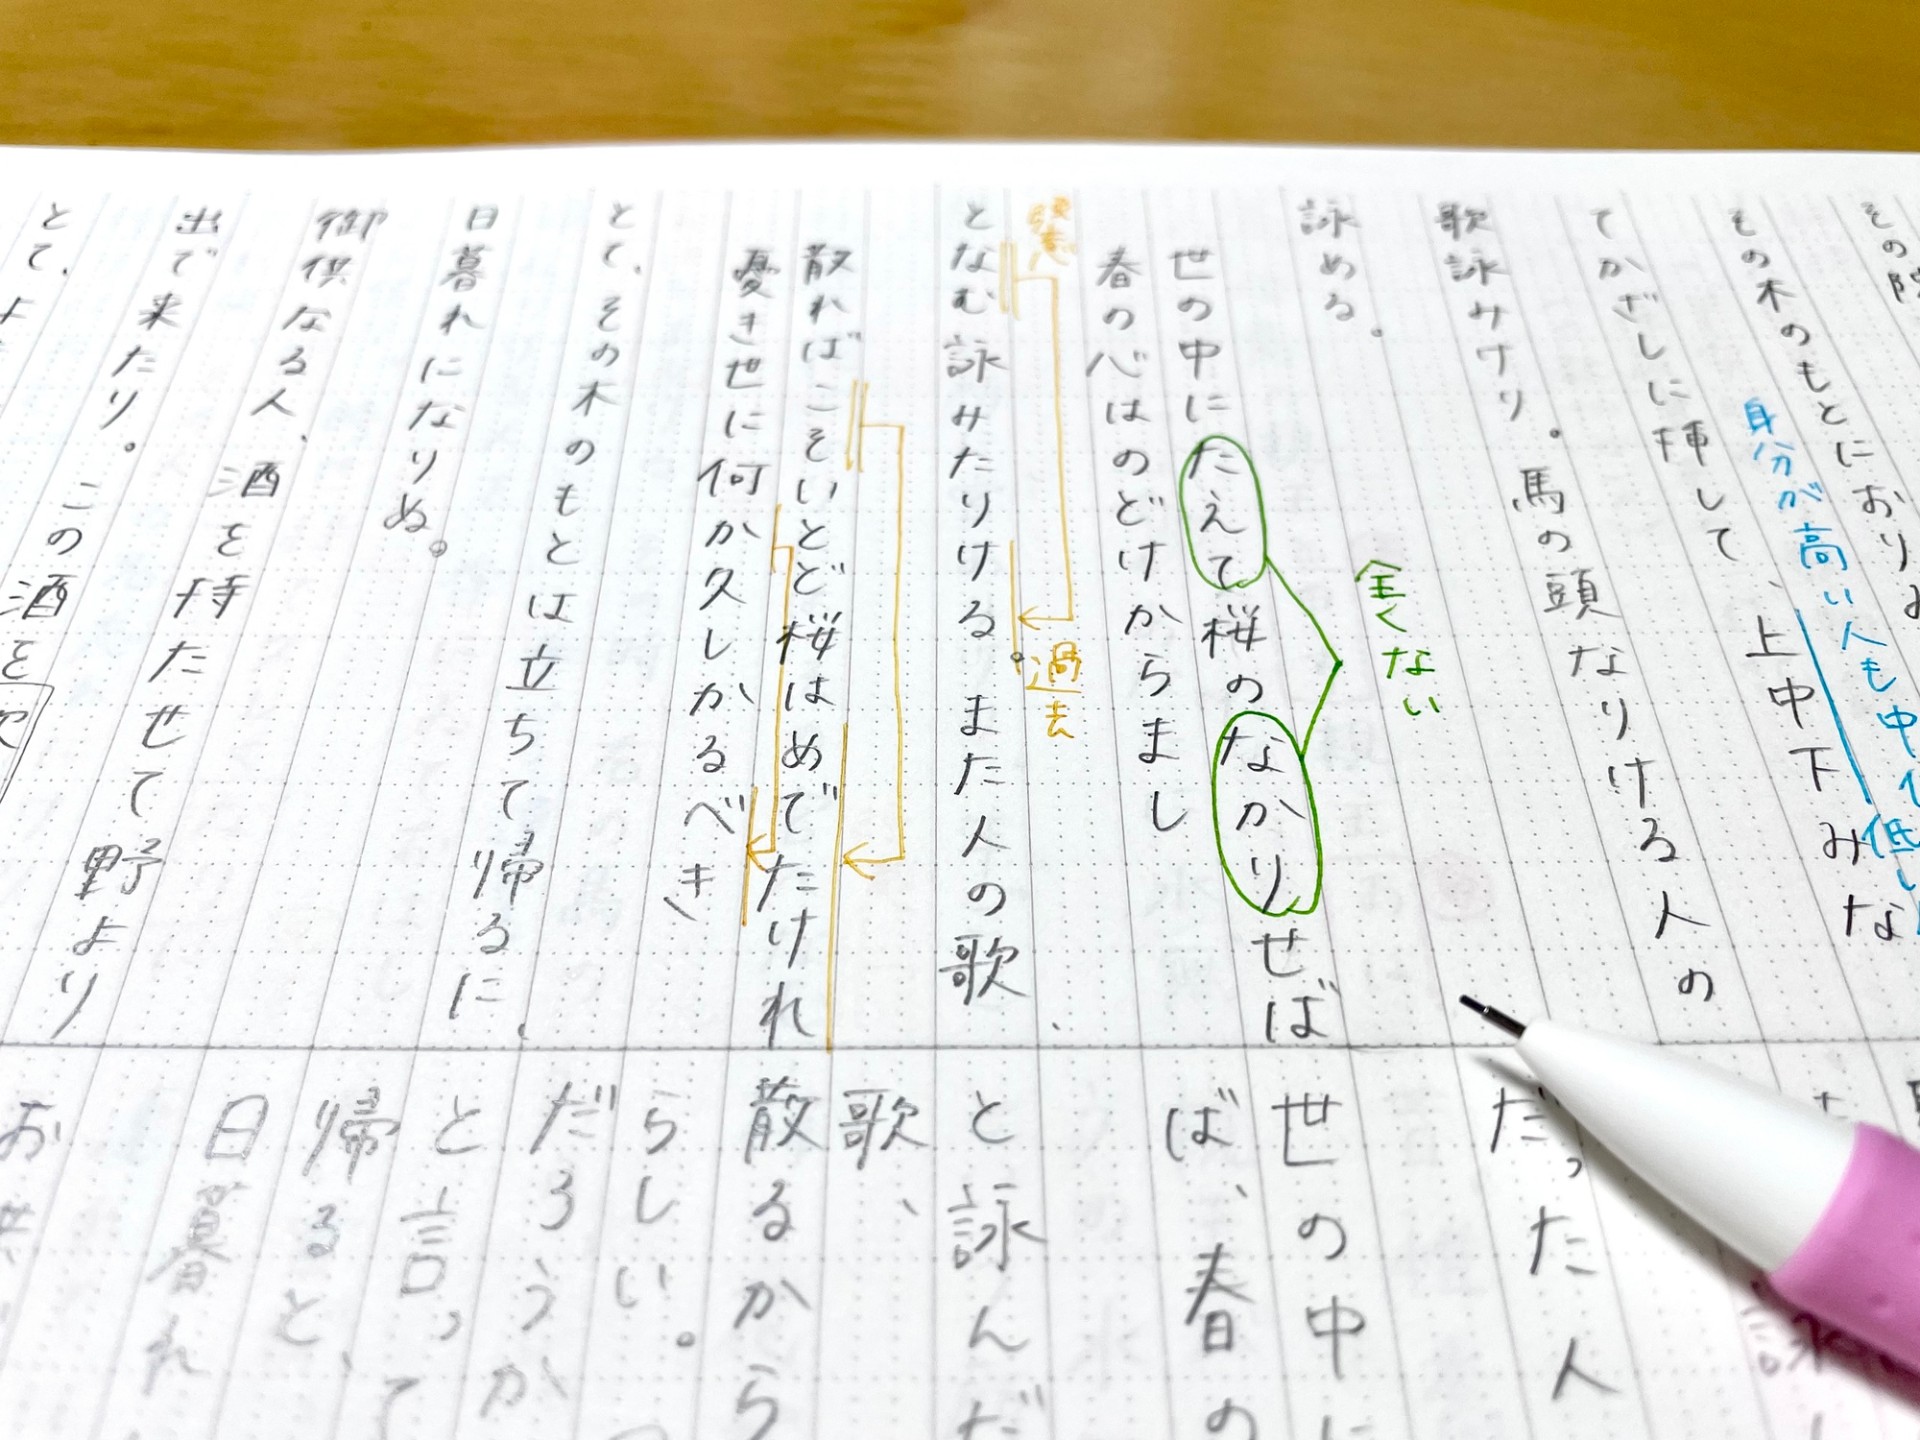 その木のもとにおりゐ
てかざしに挿して、上中下みな
身分が高い人も中
歌詠みけり。馬の頭なりける人の
詠める。
全くない
世の中にたえて桜のなかりせば
春の心はのどけからまし
過去
となむ詠みたりける。また人の歌、
散ればこそいとど桜はめでたけれ
憂き世に何か久しかるべき
とて、その木のもとは立ちて帰るに、
日暮れになりぬ。
御供なる人、酒を持たせて野より
出で来たり。この酒を
とて、よ
だった人
世の中に
ば、春の
と詠んだ
歌、
散るから
らしい。
だろうか
と言って
帰ると、
日暮れ
お供